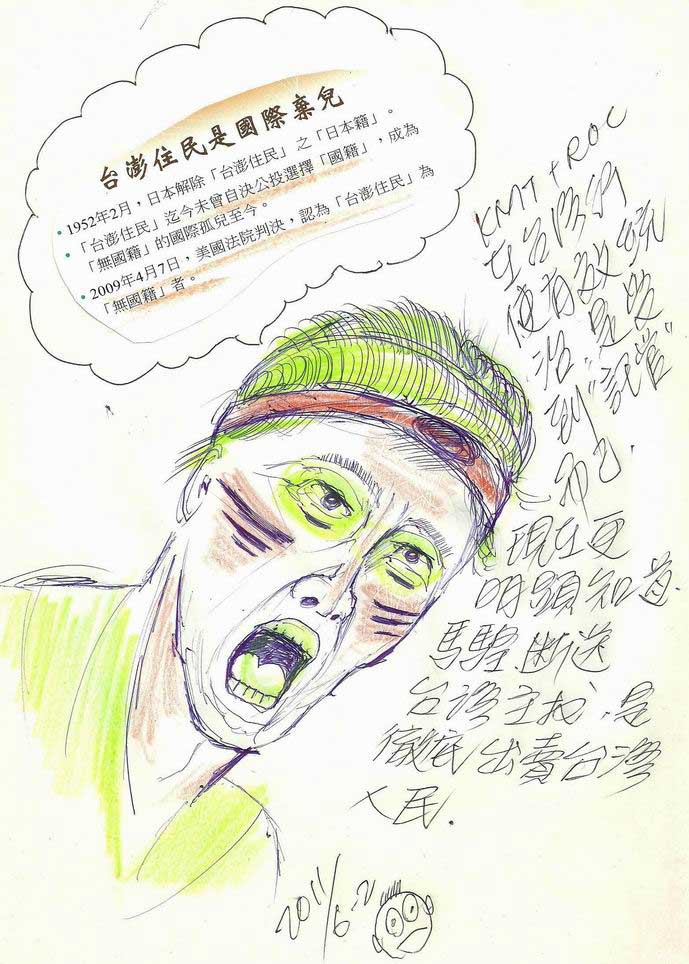 台澎住民是國際棄兒
• 1952年2月，日本解除「台澎住民」之「日本籍」。
「台澎住民」迄今未曾自決公投選擇「國籍」，成為
「無國籍」的國際孤兒至今。
• 2009年4月7日，美國法院判決，認為「台澎住民」為
「無國籍」者。
KMT + ROC
在台灣行
使有效統
治是受
到"託管"
而已.
現在更
明顯知道
馬騜.断送
台湾主权.是
徹底出賣台灣
人民.
2011/6.2